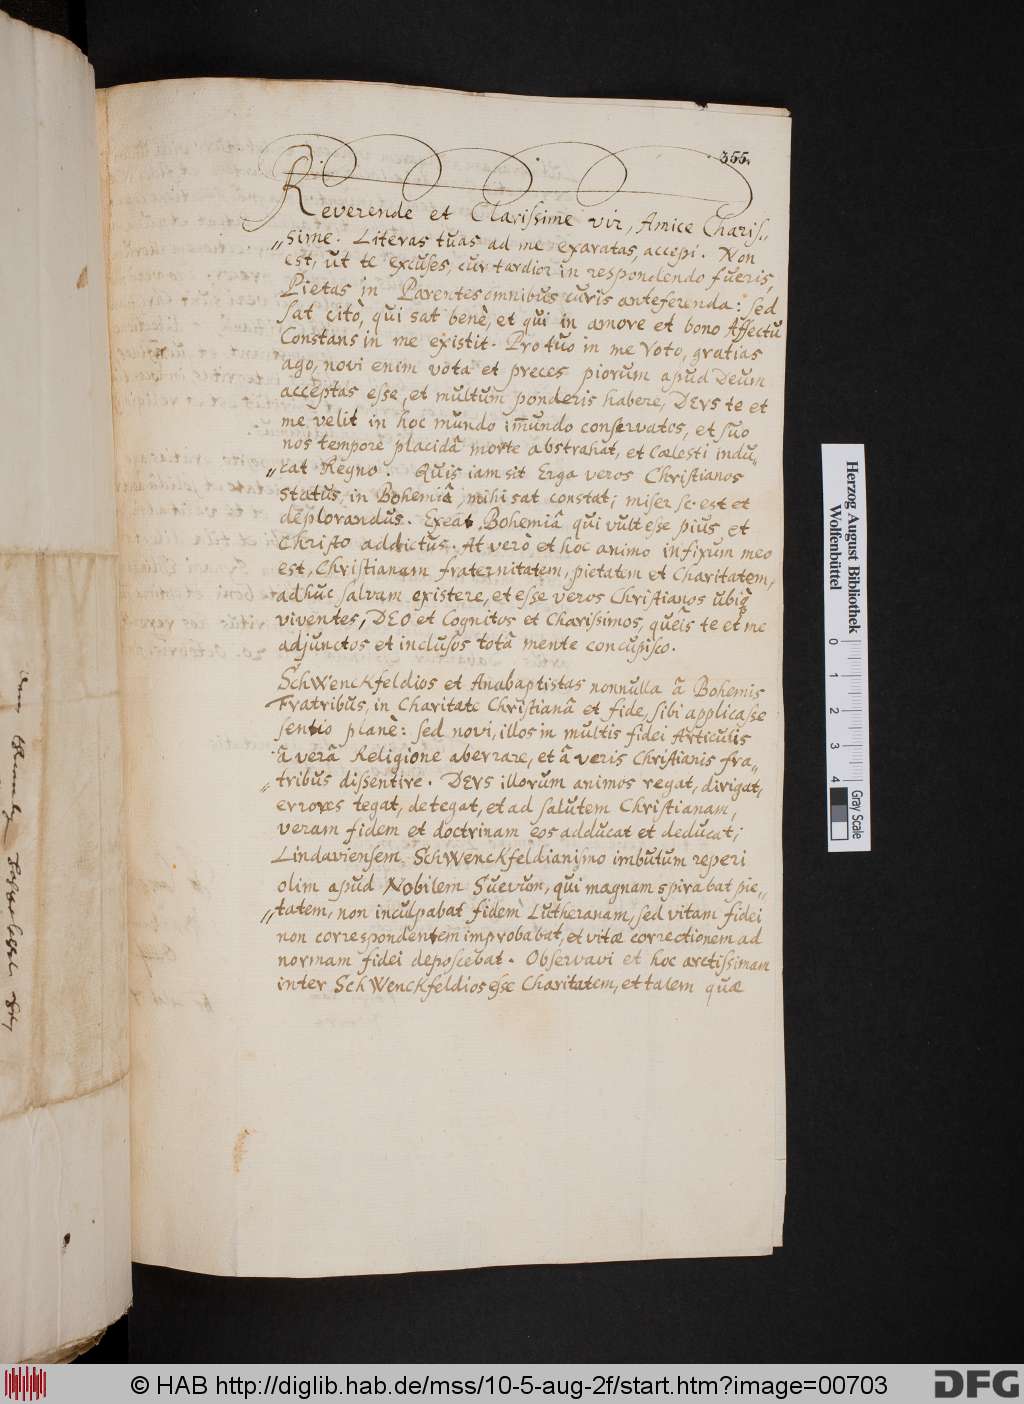 355.
Reverende et Clarissime vir, Amice Charis„
„sime. Literas tuas ad me exaratas, accepi. Non
est, ut te excuses, cur tardior in respondendo fueris,
Pietas in Parentes omnibus curis anteferenda: sed
sat citò, qui sat benè, et qui in amore et bono Affectu
Constans in me existit. Pro tuo in me Voto, gratias
ago, novi enim vota et preces piorum apud Deum
acceptas esse, et multum ponderis habere, DEVS te et
me velit in hoc mundo im̄undo conservatos, et suo
nos tempore placidâ morte abstrahat, et Cœlesti indu„
„cat Regno. Quis iam sit Erga veros Christianos
status, in Bohemiâ, mihi sat constat; miser sc. est et
deplorandus. Exeat Bohemiâ qui vult esse pius, et
Christo addictus. At verò et hoc animo infixum meo
est, Christianam fraternitatem, pietatem et Charitatem,
adhuc salvam existere, et esse veros Christianos ubiq̨
viventes, DEO et Cognitos et Charissimos, quêis te et me
adjunctos et inclusos totâ mente concupisco.
Schwenckfeldios et Anabaptistas nonnulla â Bohemis
Fratribus, in Charitate Christianâ et fide, sibi applicasse
sentio planè: sed novi, illos in multis fidei Articulis
â verâ Religione aberrare, et â veris Christianis fra„
„tribus dissentire. DEVS illorum animos regat, dirigat,
errores tegat, detegat, et ad salutem Christianam,
veram fidem et doctrinam eos adducat et deducat;
Lindaviensem Schwenckfeldianismo imbutum reperi
olim apud Nobilem Suevum, qui magnam spirabat pie„
„tatem, non inculpabat fidem Lutheranam, sed vitam fidei
non correspondentem improbabat, et vitæ correctionem ad
normam fidei deposcebat. Observavi et hoc arctissimam
inter Schwenckfeldios esse Charitatem, et talem quæ
Herzog August Bibliothek
Wolfenbüttel
0 1 2 3 4
Gray Scale
© HAB http://diglib.hab.de/mss/10-5-aug-2f/start.htm?image=00703
DFG